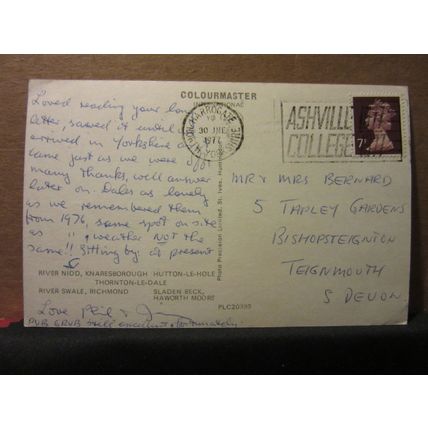 COLOURMASTER
INTERNATIONAL
Loved reading your long
letter, saved it until we
arrived in Yorkshire as it
came just as we were off
many thanks, well answer
later on. Dales as lovely
as we remembered them
from 1976, same spot on site
as " , weather NOT the
same!! Sitting by at present
RIVER NIDD, KNARESBOROUGH HUTTON-LE-HOLE
THORNTON-LE-DALE
RIVER SWALE, RICHMOND SLADEN BECK,
HAWORTH MOORE
PLC20393
Love Phil &
PUB GRUB still excellent fortunately.
Photo Precision Limited, St. Ives,
HARROGATE
30 JNE
1977
YORKSHIRE
ASHVILLE
COLLEGE
7
MR & MRS BERNARD
5 TAPLEY GARDENS
BISHOPSTEIGNTON
TEIGNMOUTH
S DEVON